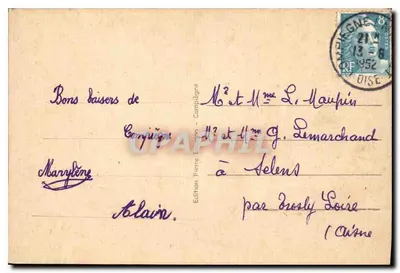 COMPIEGNE
13-6
1952
OISE
RF
Bons baisers de
Compiègne
Marylène
Alain.
Mr et Mme L. Maupin
Mr et Mme G. Lemarchand
à Selens
par Trosly Loire
(Aisne
DELCAMPHIL